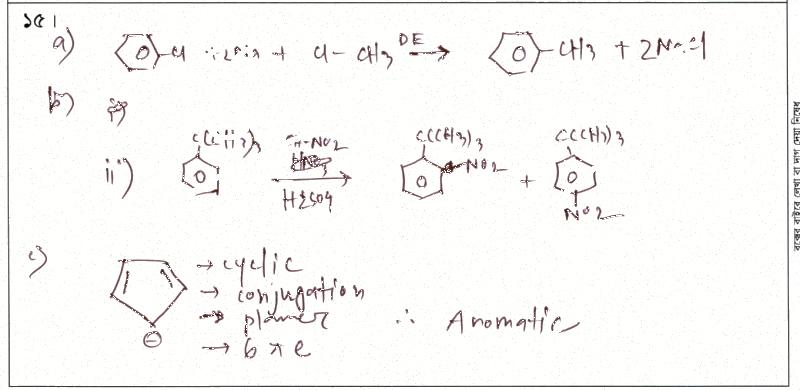 ১৫।
a) Cl + 2Na + Cl - CH3 DE → CH3 + 2NaCl
b) i)
ii) C(CH3)3 HO-NO2 H2SO4 → C(CH3)3 NO2 + C(CH3)3 NO2
c) → cyclic
→ conjugation
→ planer ∴ Aromatic
⊖ → 6 π e
বক্সের বাইরে লেখা বা দাগ দেয়া নিষেধ